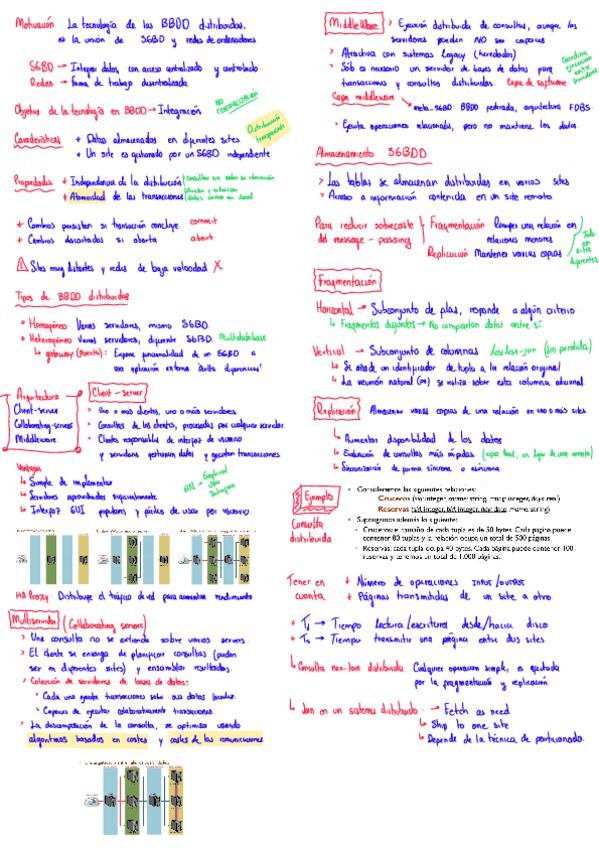 Motivación La tecnología de las BBDD distribuidas,
es la unión de SGBD y redes de ordenadores
SGBD → Integrar datos, con acceso centralizado y controlado
Redes → forma de trabajo descentralizada.
Objetivo de la tecnología en BBDD → Integración
NO CENTRALIZACIÓN
Distribución transparente
Características + Datos almacenados en diferentes sites
+ Un site es gestionado por un SGBD independiente
Propiedades + Independencia de la distribución
+ Atomicidad de las transacciones
+ Cambios persisten si transacción concluye. commit
+ Cambios descartados si aborta abort
Sites muy distantes y redes de baja velocidad X
Tipos de BBDD distribuidas
Homogéneo Varios servidores, mismo SGBD.
Heterogéneo Varios servidores, diferente SGBD. Multidatabase
↳ gateway (puerta): Expone funcionalidad de un SGBD a
una aplicación externa
Arquitectura
Client-server
Collaborating-servers
Middleware
Client-server
> Uno o más clientes, uno o más servidores.
> Consultas de los clientes, procesadas por cualquier servidor.
> Clientes responsables de interfaz de usuario
y servidores gestionan datos y ejecutan transacciones
Ventajas
↳ Simple de implementar
↳ Servidores aprovechados
↳ Interfaz GUI populares y fáciles de usar por usuario
GUI → Graphical User Interface
HA Proxy Distribuye el tráfico de red para aumentar rendimiento.
Multiservidor (Collaborating servers)
> Una consulta no se extiende sobre varios servers.
> El cliente se encarga de planificar consultas (pueden
ser en diferentes sites) y ensamblar resultados.
> Colección de servidores de bases de datos:
Cada uno ejecuta transacciones sobre sus datos locales.
Capaces de ejecutar colaborativamente transacciones.
> La descomposición de la consulta, se optimiza usando
algoritmos basados en costes y costes de las comunicaciones
Middleware > Ejecución distribuida de consultas, aunque los
servidores pueden NO ser capaces
> Atractiva con sistemas Legacy (heredados)
> Sólo es necesario un servidor de bases de datos para
transacciones y consultas distribuidas. Capa de software
Coordina ejecución entre servidores
Capa middleware
→ meta_SGBD: BBDD federada, arquitectura FDBS.
Ejecuta operaciones relacionales, pero no mantiene los datos.
Almacenamiento SGBDD
> Las tablas se almacenan distribuidas en varios sites
> Acceso a información contenida en un site remoto.
Para reducir sobrecoste del message-passing
Fragmentación Romper una relación en
relaciones menores
Replicación Mantener varias copias
Todo en sites diferentes
Fragmentación
Horizontal → Subconjunto de filas, responde a algún criterio.
↳ Fragmentos disjuntos → No comparten datos entre sí.
Vertical → Subconjunto de columnas (sin pérdida)
↳ Se añade un identificador de tupla a la relación original
↳ La reunión natural (⋈) se realiza sobre esta columna adicional.
Replicación Almacenar varias copias de una relación en uno o más sites.
↳ Aumentar disponibilidad de los datos
↳ Evaluación de consultas más rápidas (copia local, en lugar de una remota)
↳ Sincronización de forma síncrona o asíncrona.
Ejemplo
Consulta distribuida
• Consideremos las siguientes relaciones:
• Supongamos además lo siguiente:
• Cruceros: tamaño de cada tupla es de 50 bytes. Cada página puede
contener 80 tuplas y la relación ocupa un total de 500 páginas.
• Reservas: cada tupla ocupa 40 bytes. Cada página puede contener 100
reservas y tenemos un total de 1.000 páginas.
Tener en cuenta
+ Número de operaciones input/output
+ Páginas transmitidas de un site a otro.
→ Tiempo lectura/escritura desde/hacia disco.
→ Tiempo transmitir una página entre dos sites.
↳ Consulta non-Join distribuida Cualquier operación simple, es afectada
por la fragmentación y replicación
↳ Join en un sistema distribuido → Fetch as need
↳ Ship to one site
↳ Depende de la técnica de particionado.